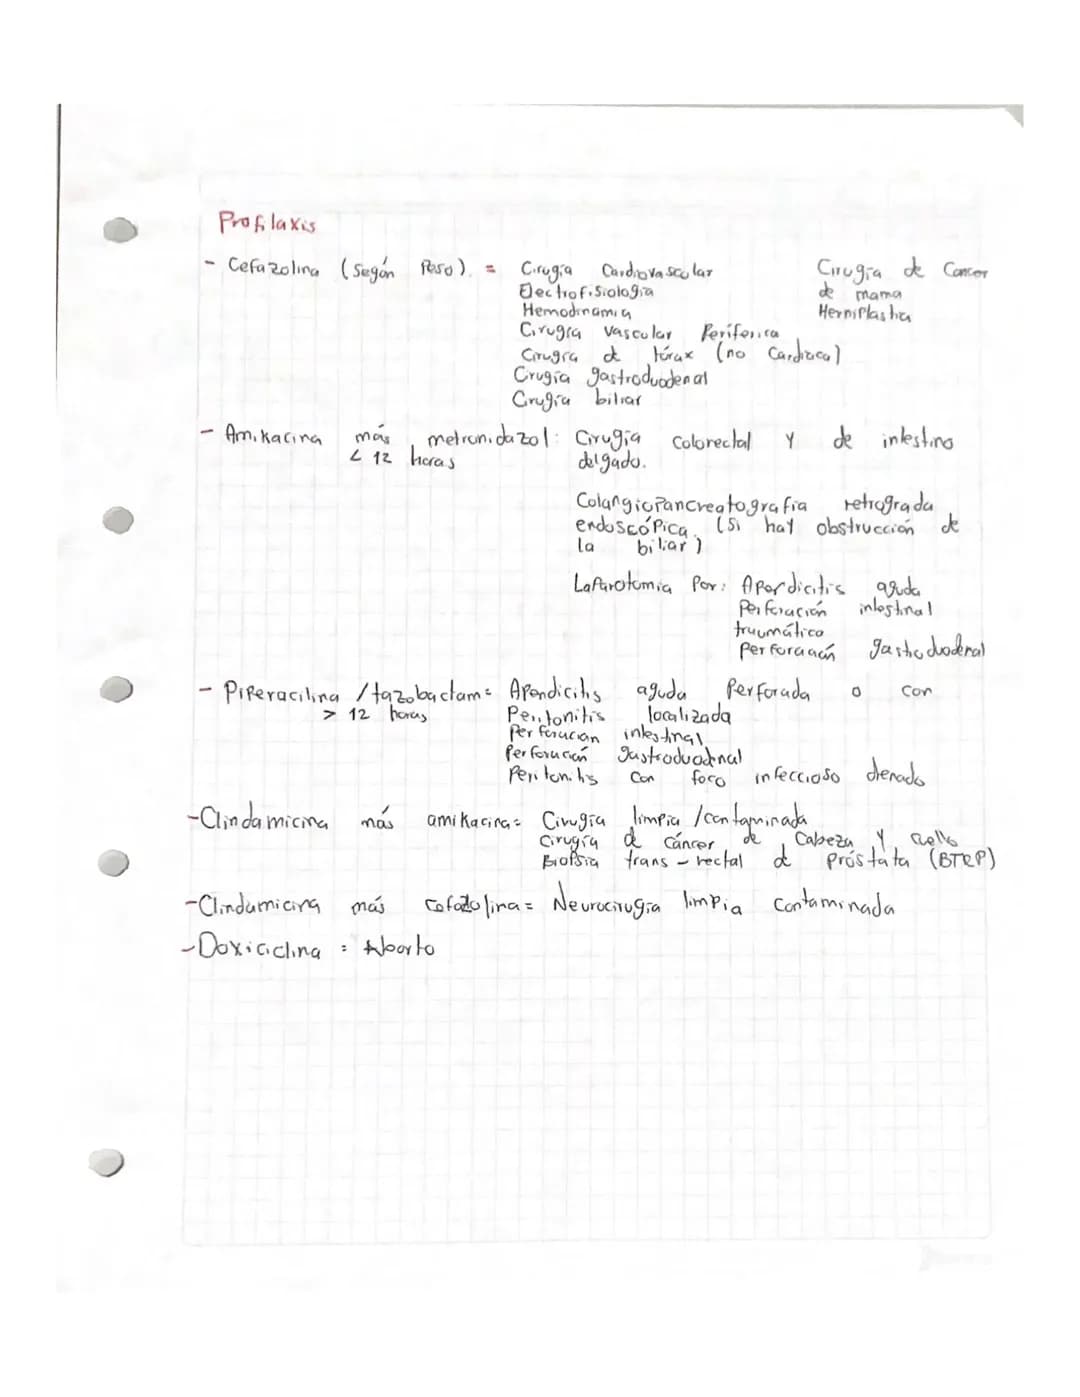 Profilaxis
- Cefazolina (Según Peso). = Cirugía Cardiovascular
Electrofisiología
Hemodinamia
Cirugía vascular Periferica
Cirugía de tórax (no Cardiaca)
Cirugía gastroduodenal
Cirugía biliar
Cirugía de Cancer
de mama
Herniplastia
- Amikacina más metronidazol: Cirugía colorectal y de intestino
< 12 horas delgado.
Colangiopancreatografia retrograda
endoscópica. (Si hay obstrucción de
la biliar)
Laparotomia Por: Apendicitis aguda
Perforación intestinal
traumático
Perforación gastroduodenal
- Piperacilina /tazobactam= Apendicitis aguda Perforada o con
> 12 horas Peritonitis localizada
Perforación intestinal
Perforación gastroduodenal
Peritonitis con foco infeccioso drenado
-Clindamicina más amikacina= Cirugía limpia /contaminada
Cirugía de cáncer de Cabeza y cuello
Biopsia trans - rectal de próstata (BTRP)
-Clindamicina más cefazolina= Neurocirugía limpia contaminada
-Doxiciclina = Aborto